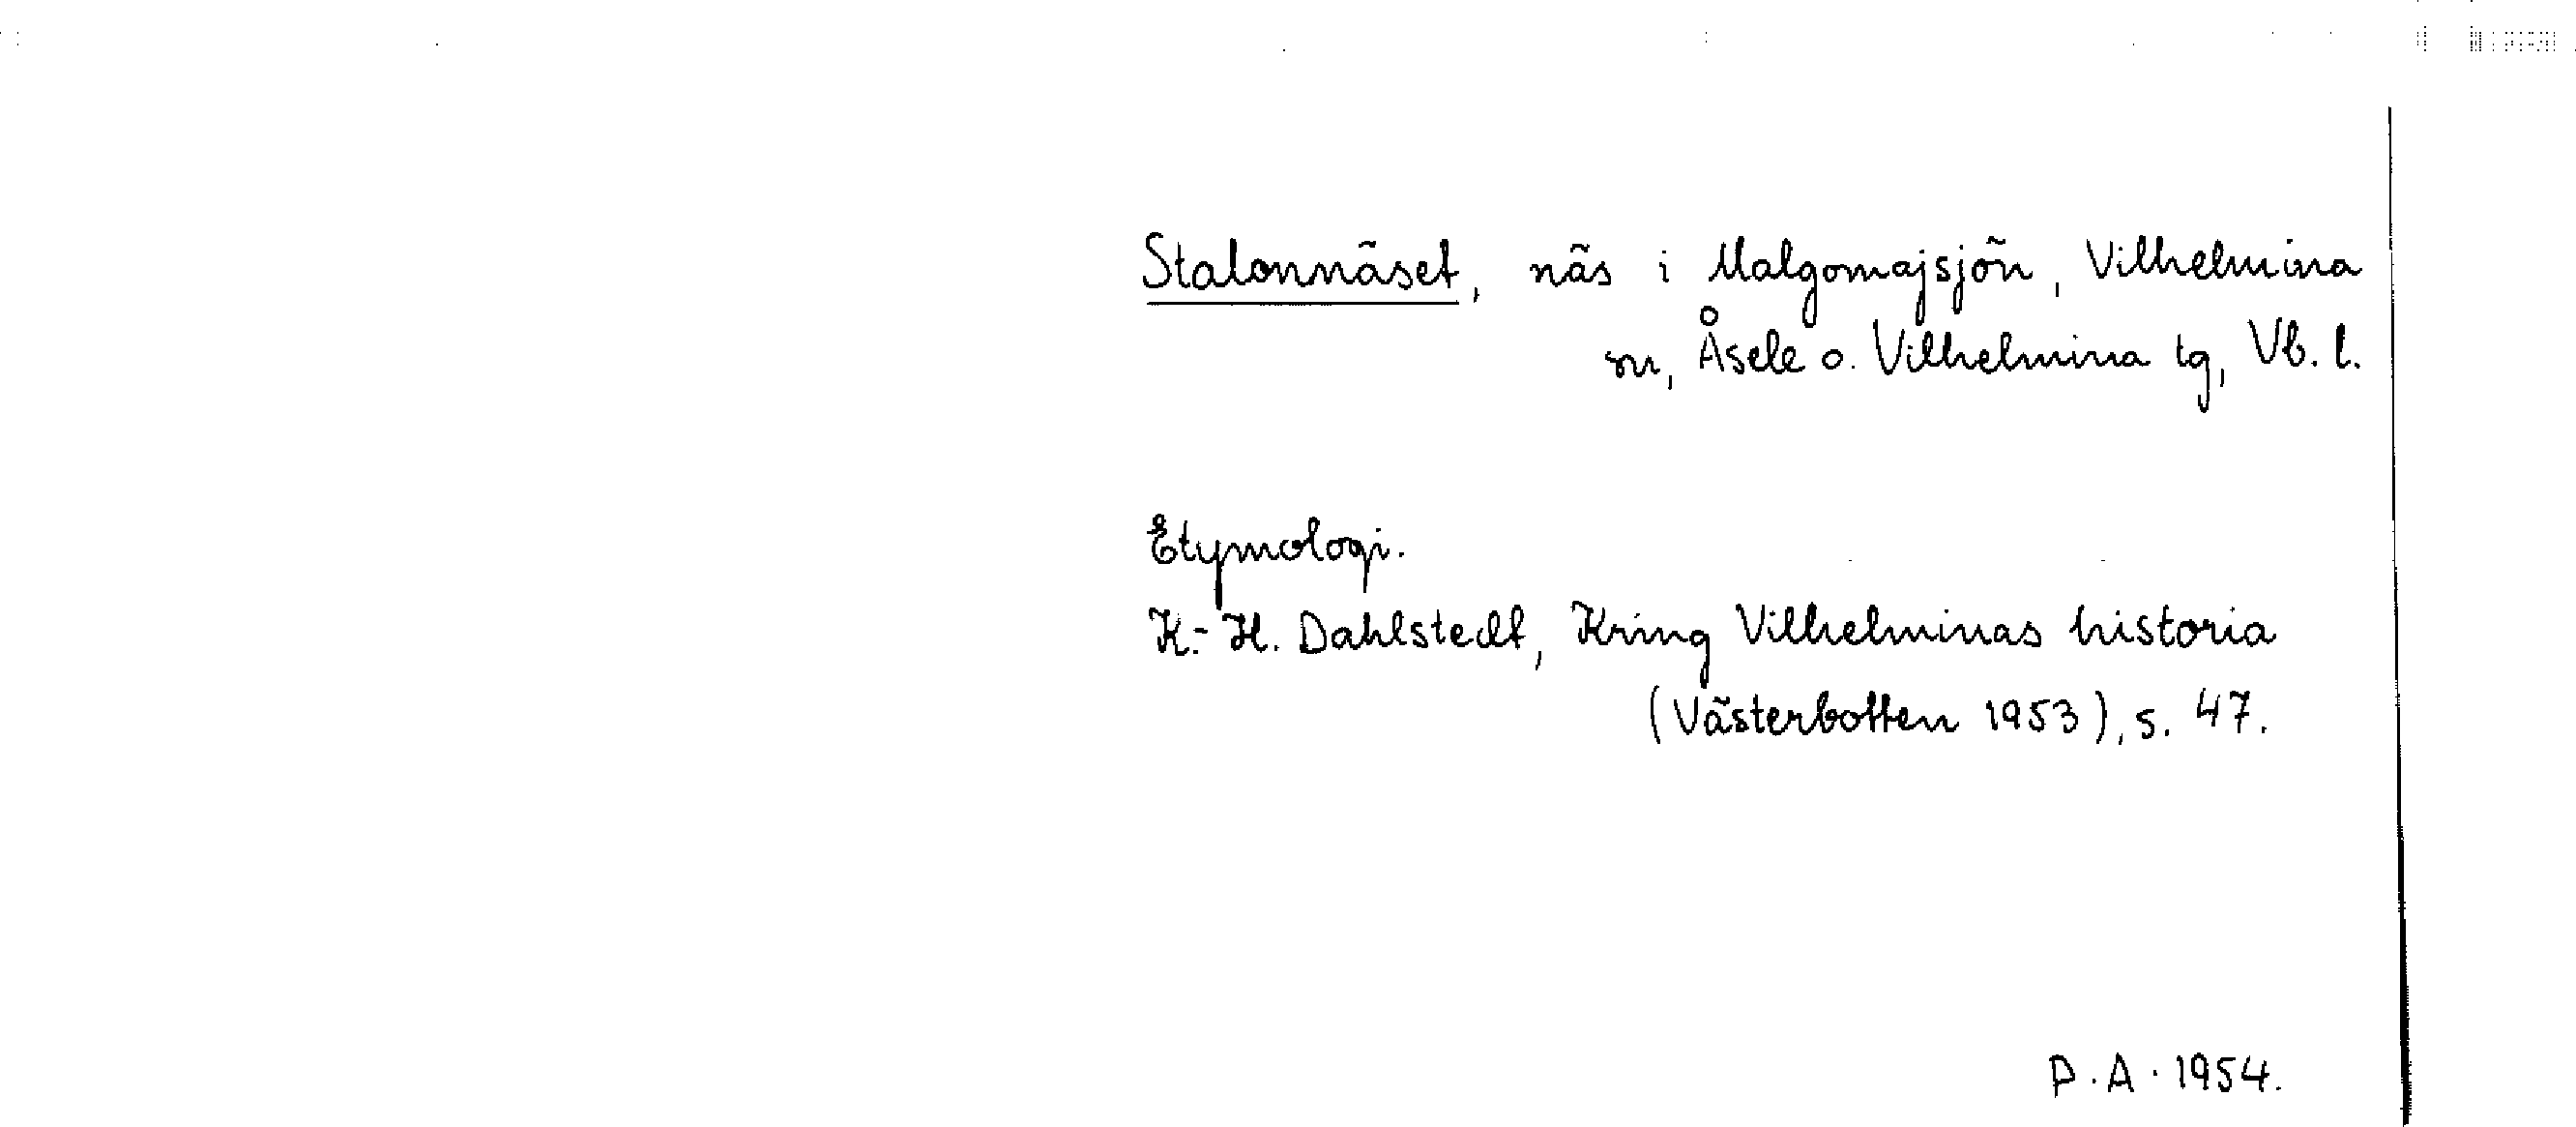 Stalonnäset, näs i Malgomajsjön, Vilhelmina
sn, Åsele o. Vilhelmina tg, Vb. l.
Etymologi.
K.-H. Dahlstedt, Kring Vilhelminas historia
(Västerbotten 1953), s. 47.
P.A. 1954.